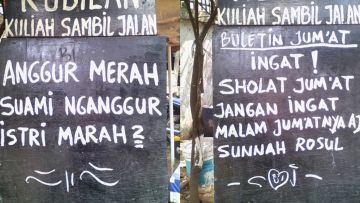 KULIAH SAMBIL JALAN
ANGGUR MERAH
SUAMI NGANGGUR
ISTRI MARAH2
KULIAH SAMBIL JALAN
BULETIN JUM'AT
INGAT !
SHOLAT JUM'AT
JANGAN INGAT
MALAM JUM'ATNYA AJ
SUNNAH ROSUL